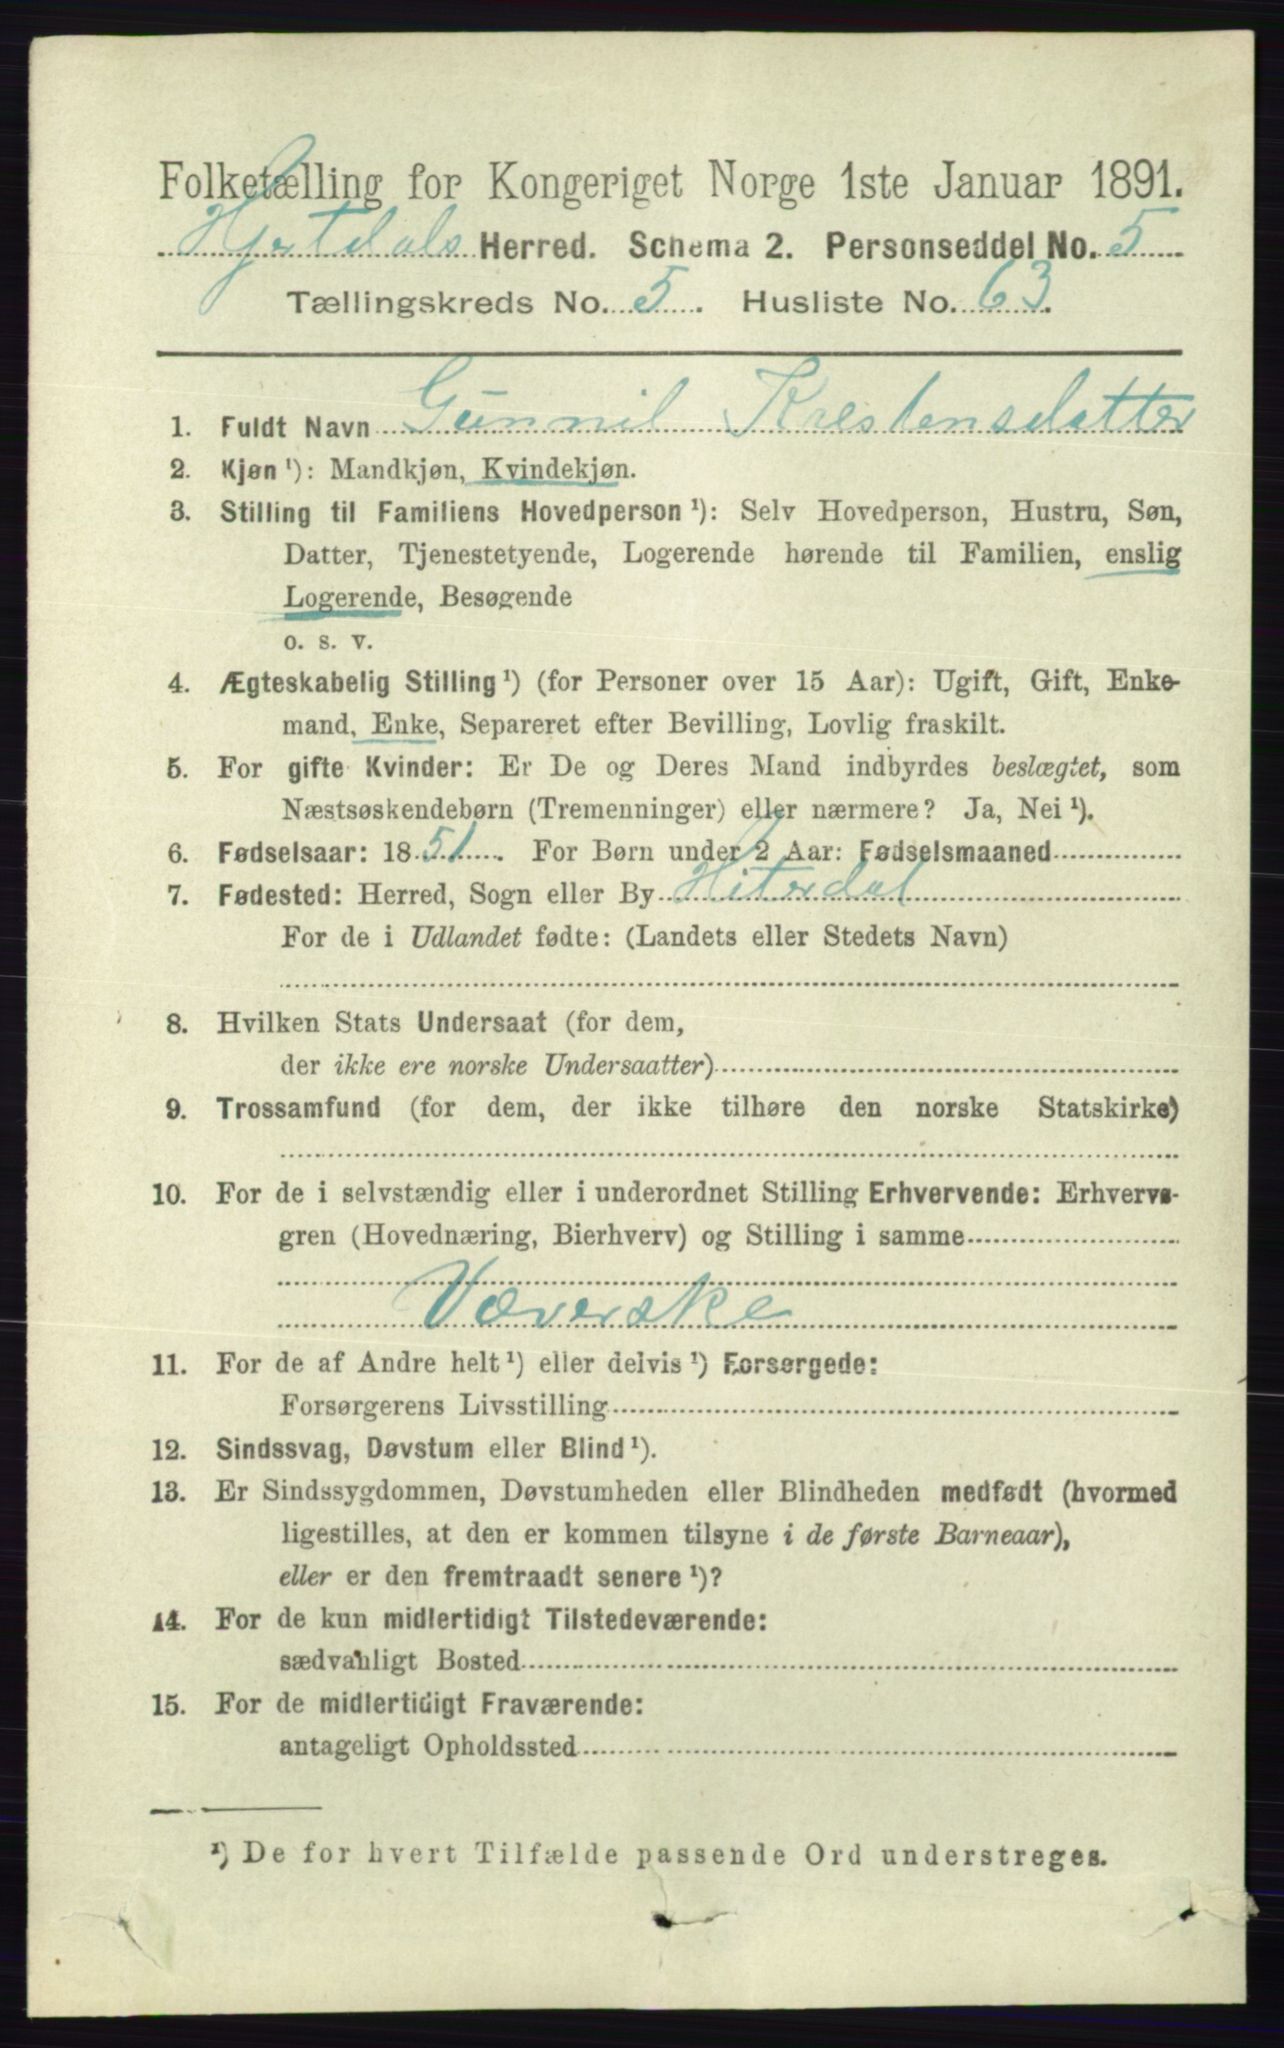 Folketælling for Kongeriget Norge 1ste Januar 1891.
Hjertdals Herred. Schema 2. Personseddel No. 5
Tællingskreds No. 5. Husliste No. 63.
1. Fuldt Navn Gunnil Krestensdatter
2. Kjøn ¹): Mandkjøn, Kvindekjøn.
3. Stilling til Familiens Hovedperson ¹): Selv Hovedperson, Hustru, Søn,
Datter, Tjenestetyende, Logerende hørende til Familien, enslig
Logerende, Besøgende
o. s. v.
4. Ægteskabelig Stilling ¹) (for Personer over 15 Aar): Ugift, Gift, Enke-
mand, Enke, Separeret efter Bevilling, Lovlig fraskilt.
5. For gifte Kvinder: Er De og Deres Mand indbyrdes beslægtet, som
Næstsøskendebørn (Tremenninger) eller nærmere? Ja, Nei ¹).
6. Fødselsaar: 1851. For Børn under 2 Aar: Fødselsmaaned
7. Fødested: Herred, Sogn eller By Hiterdal
For de i Udlandet fødte: (Landets eller Stedets Navn)
8. Hvilken Stats Undersaat (for dem,
der ikke ere norske Undersaatter)
9. Trossamfund (for dem, der ikke tilhøre den norske Statskirke)
10. For de i selvstændig eller i underordnet Stilling Erhvervende: Erhvervs-
gren (Hovednæring, Bierhverv) og Stilling i samme
Væverske
11. For de af Andre helt ¹) eller delvis ¹) Forsørgede:
Forsørgerens Livsstilling
12. Sindssvag, Døvstum eller Blind ¹).
13. Er Sindssygdommen, Døvstumheden eller Blindheden medfødt (hvormed
ligestilles, at den er kommen tilsyne i de første Barneaar),
eller er den fremtraadt senere ¹)?
14. For de kun midlertidigt Tilstedeværende:
sædvanligt Bosted
15. For de midlertidigt Fraværende:
antageligt Opholdssted
¹) De for hvert Tilfælde passende Ord understreges.